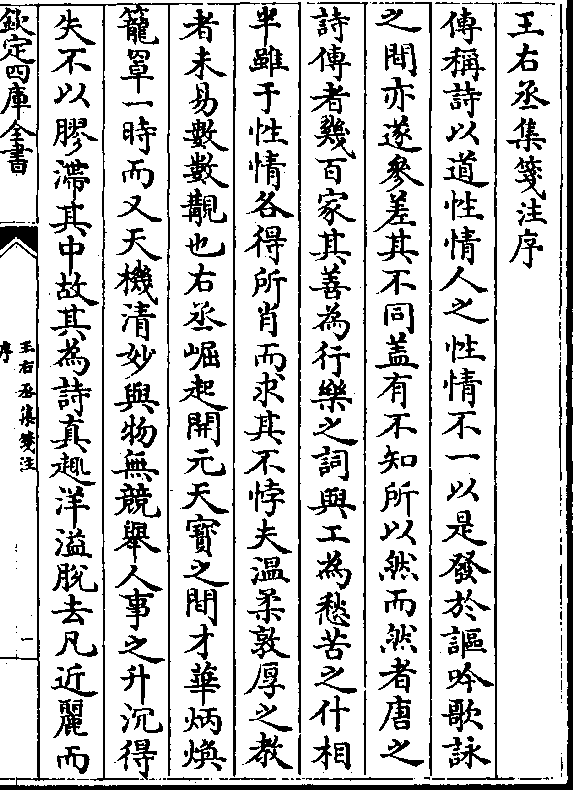 王右丞集箋注序
傳稱詩以道性情人之性情不一以是發於謳吟歌詠
之間亦遂參差其不同盖有不知所以然而然者唐之
詩傳者幾百家其善為行樂之詞與工為愁苦之什相
半雖于性情各得所肖而求其不悖夫溫柔敦厚之教
者未易數數覯也右丞崛起開元天寶之間才華炳煥
籠罩一時而又天機清妙與物無競舉人事之升沉得
失不以膠滯其中故其為詩真趣洋溢脫去凡近麗而
欽定四庫全書
王右丞集箋注
序
一